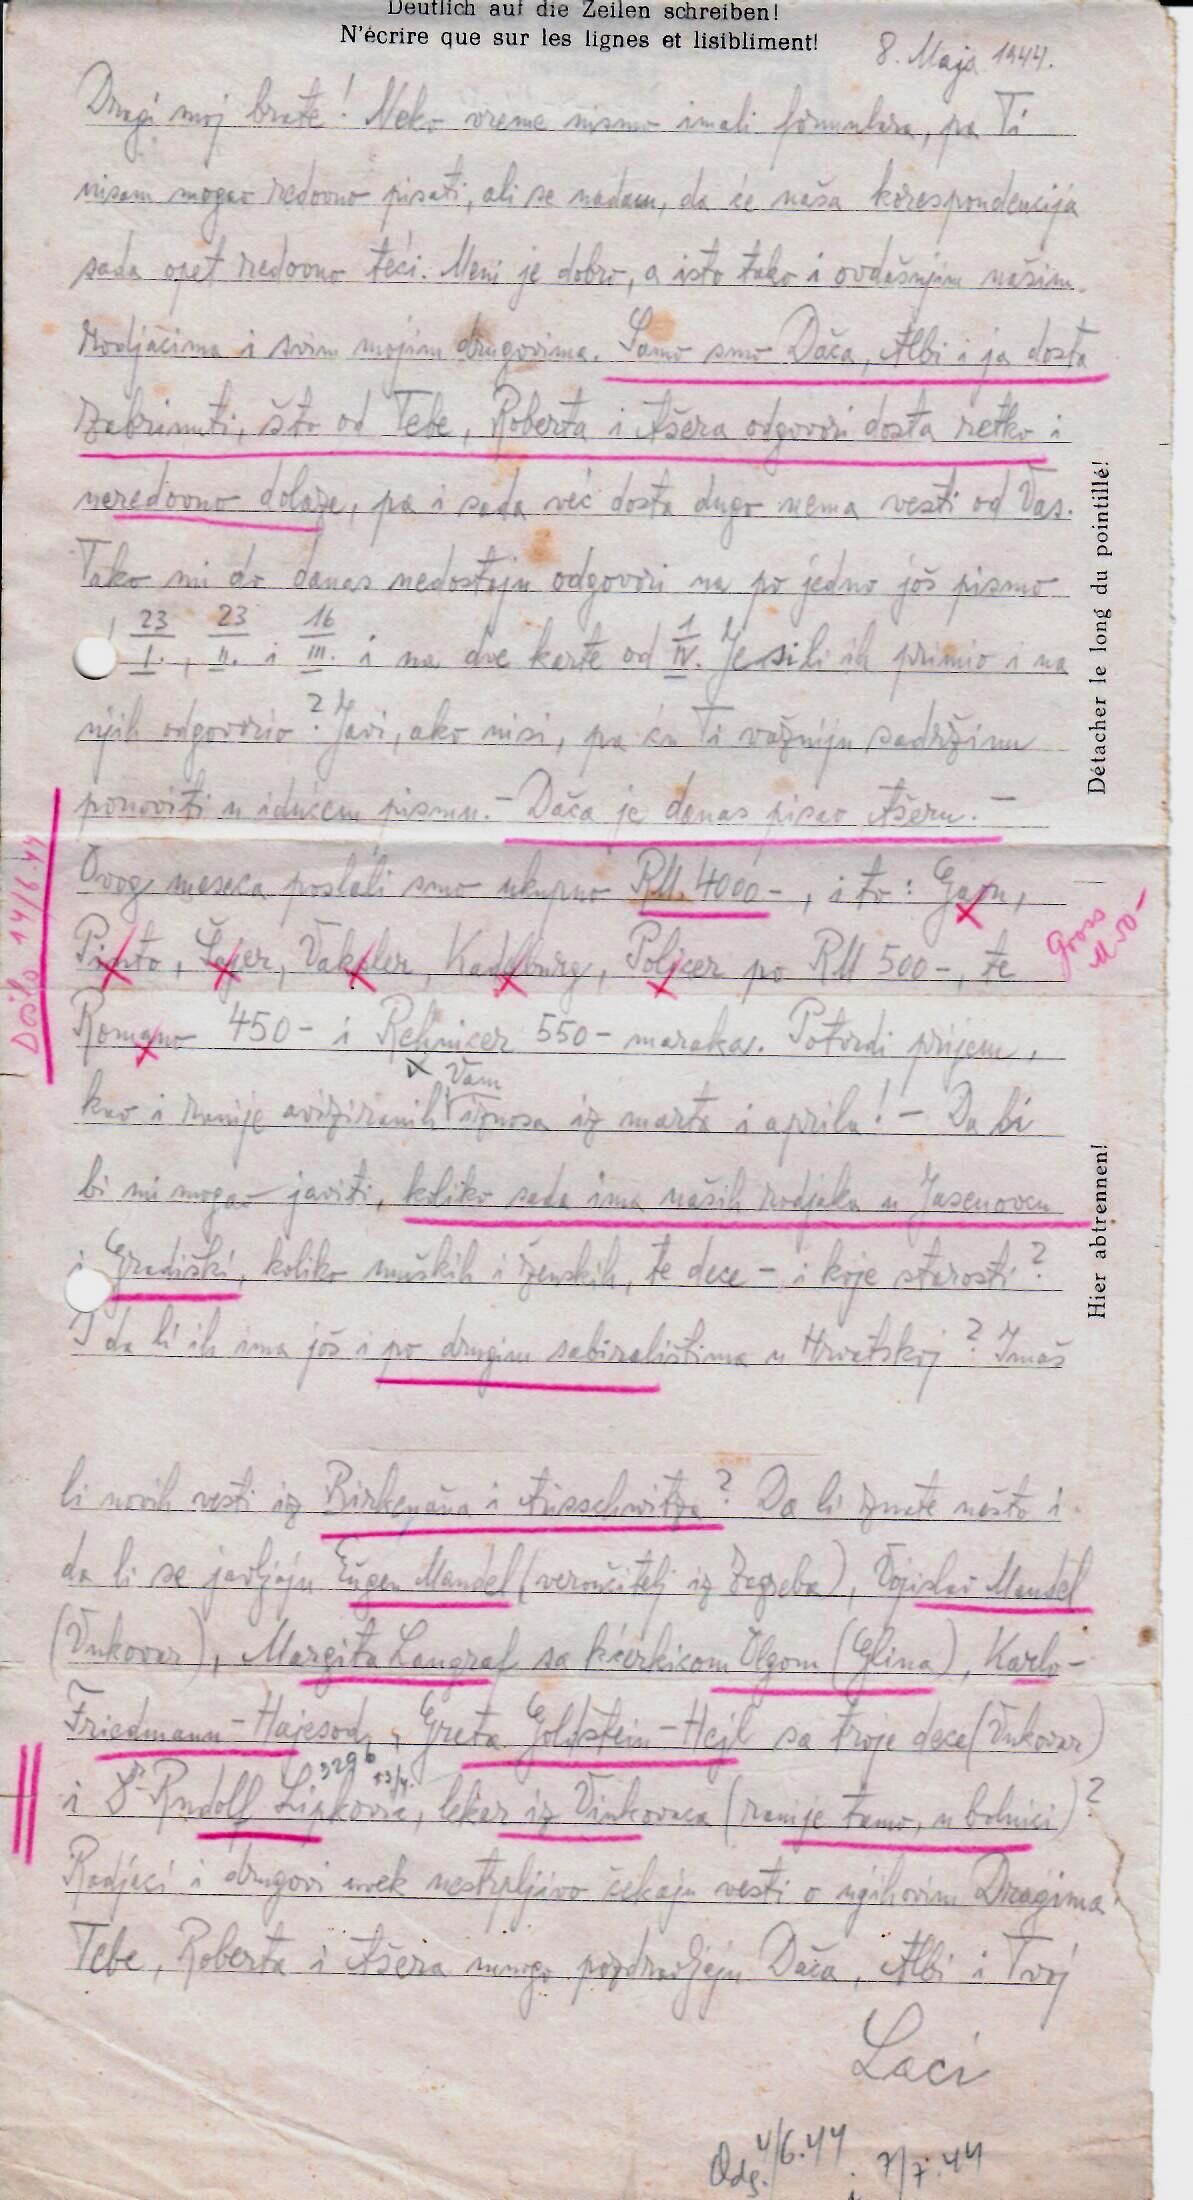 Deutlich auf die Zeilen schreiben!
N'écrire que sur les lignes et lisibliment!
8. Maja 1944.
Dragi moj brate! Neko vreme nismo imali formulara, pa Ti
nisam mogao redovno pisati, ali se nadam, da će naša korespondencija
sada opet redovno teći. Meni je dobro, a isto tako i ovdašnjim našim
rodjacima i svim mojim drugovima. Samo smo Dača, Albi i ja dosta
zabrinuti, što od Tebe, Roberta i Ašera odgovori dosta retko i
neredovno dolaze, pa i sada već dosta dugo nema vesti od Vas.
Tako mi do danas nedostaju odgovori na po jedno još pismo
23/I., 23/II. i 16/III. i na dve karte od 1/IV. Jesi li ih primio i na
njih odgovorio? Javi, ako nisi, pa ću Ti važniju sadržinu
ponoviti u idućem pismu. – Dača je danas pisao Ašeru. –
Ovog meseca poslali smo ukupno RM. 4000-, i to: Gaon,
Pinto, Lager, Vaksler, Kadelburg, Policer po RM 500-, te
Romano 450- i Rehnicer 550- maraka. Potvrdi prijem,
Vam
kao i ranije aviziranih iznosa iz marta i aprila! – Da li
bi mi mogao javiti, koliko sada ima naših rodjaka u Jasenovcu
i Gradiški, koliko muških i ženskih, te dece – i koje starosti?
I da li ih ima još i po drugim sabiralištima u Hrvatskoj? Imaš
li novih vesti iz Birkenaua i Ausschwitza? Da li znate nešto i
da li se javljaju Eugen Mandel (veroučitelj iz Zagreba), Vojislav Mandel
(Vukovar), Margita Langraf sa kćerkicom Olgom (Glina), Karlo
Friedmann-Hajesod, Greta Goldstein-Hejl sa troje dece (Vukovar)
3296 13/4.
i Dr Rudolf Lipković, lekar iz Vinkovaca (ranije tamo, u bolnici)?
Rodjaci i drugovi uvek nestrpljivo čekaju vesti o njihovim Dragima.
Tebe, Roberta i Ašera mnogo pozdravljaju Dača, Albi i Tvoj
Laci
Odg. 4/6.44
i 7/7.44
Došlo 14/6.44
Gross
Détacher le long du pointillé!
Hier abtrennen!